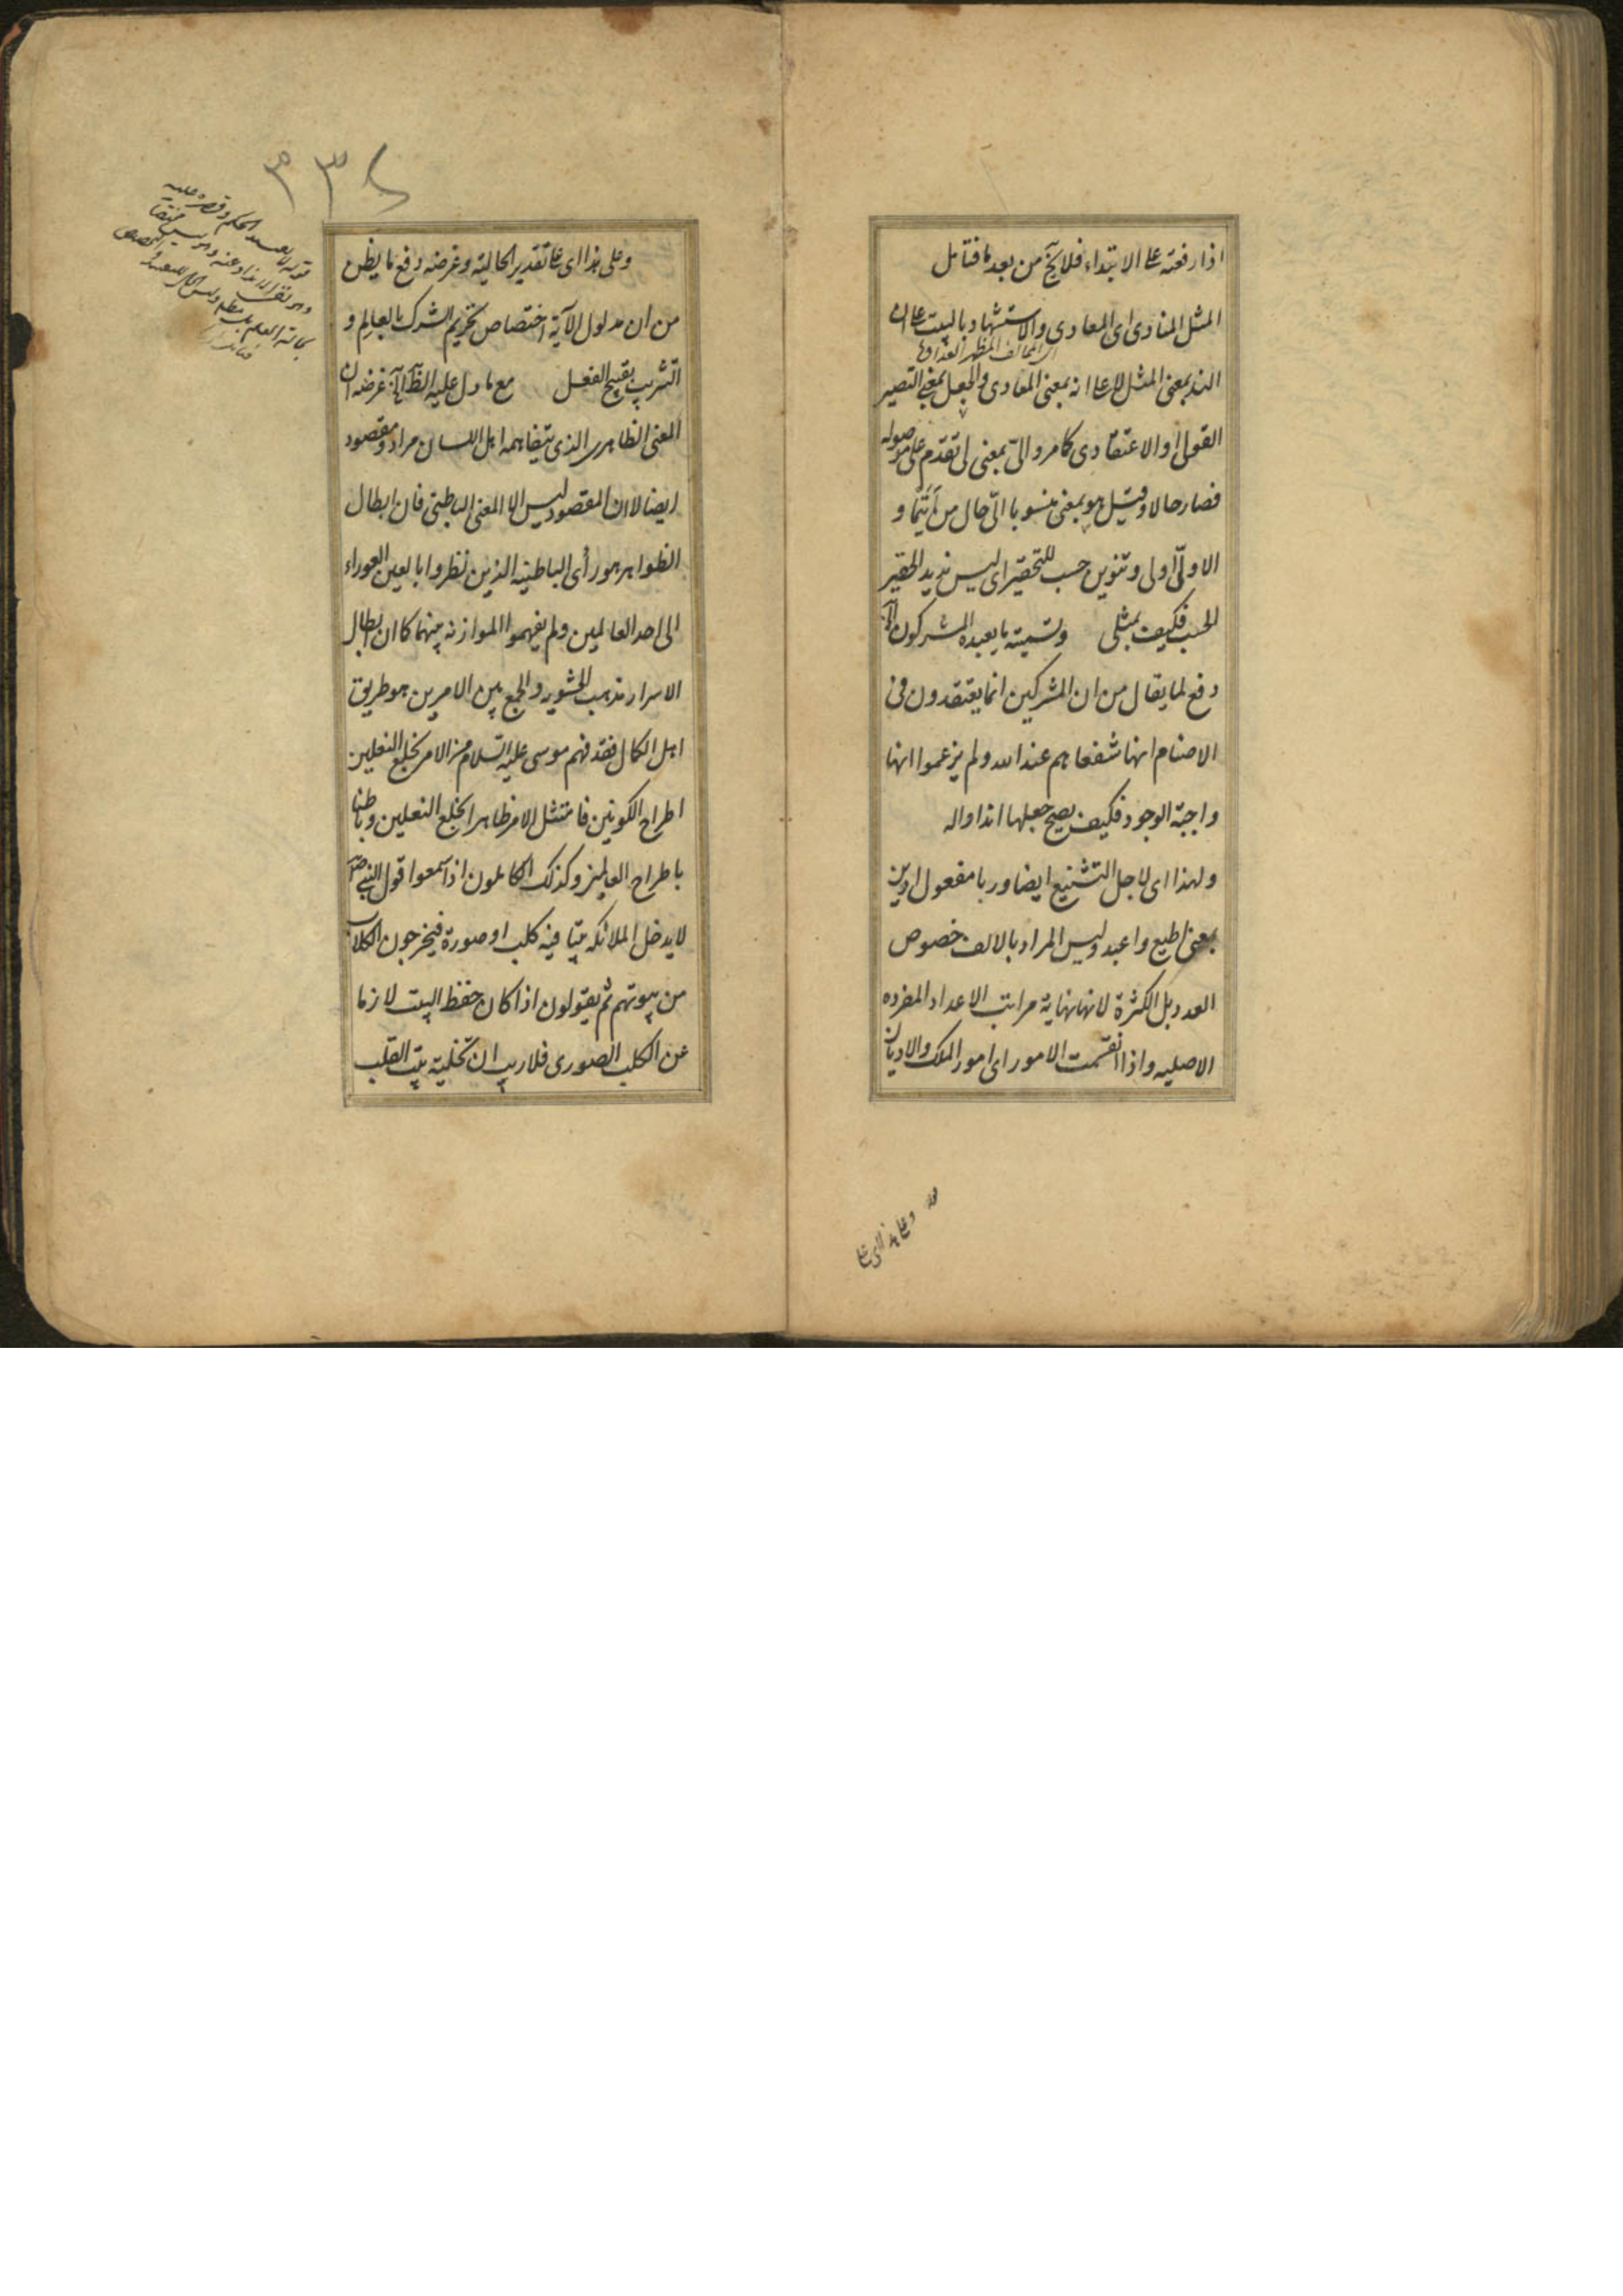 اذا رفعته عا الابتداء فلا يخ من بعد ما فتامل
المثل المنادى اى المعادى والاستشهاد بالبيت عا ان
اى المخالف المظهر العداوة
الند بمعنى المثل لا عا انه بمعنى المعادى والجعل بمعنى التصيير
القولى او الاعتقادى كما مر والىّ بمعنى لى تقدم على موصوله
فصار حالا وقيل هو بمعنى منسوبا الىّ حال من تيما و
الاول اولى وتنوين حسب للتحقير اى ليس نديد الحقير
الحسب فكيف بمثلى وتسمية ما يعبده المشركون الآ
دفع لما يقال من ان المشركين انما يعتقدون فى
الاصنام انها شفعاهم عند الله ولم يزعموا انها
واجبة الوجود فكيف يصح جعلها اندادا له
ولهذا اى لاجل التشنيع ايضا وربا مفعول ادين
بمعنى اطيع واعبد وليس المراد بالالف خصوص
العدد بل الكثرة لانها نهاية مراتب الاعداد المفرده
الاصليه واذا انقسمت الامور اى امور الملك والاديان
قوله وعلى هذا اى عا
٣٣٤
وعلى هذا اى عا تقدير الحالية وغرضه دفع ما يظن
من ان مدلول الآية اختصاص تحريم الشرك بالعالم و
التثريب تقبيح الفعل مع ما دل عليه الظ الآ غرضه ان
المعنى الظاهرى الذى يتفاهمه اهل اللسان مراد ومقصود
ايضا لا ان المقصود ليس الا المعنى الباطنى فان ابطال
الظواهر هو رأى الباطنيه الذين نظروا بالعين العوراء
الى احد العالمين ولم يفهموا الموازنه بينهما كما ان ابطال
الاسرار مذهب الحشويه والجمع بين الامرين هو طريق
اهل الكمال فقد فهم موسى عليه السلام من الامر بخلع النعلين
اطراح الكونين فامتثل الامر ظاهرا بخلع النعلين وباطنا
باطراح العالمين وكذلك الكاملون اذا سمعوا قول النبى صلم
لا يدخل الملائكه بيتا فيه كلب او صورة فيخرجون الكلاب
من بيوتهم ثم يقولون اذا كان حفظ البيت لازما
عن الكلب الصورى فلا ريب ان تخلية بيت القلب
قوله تقييد الحكم وقصره عليه